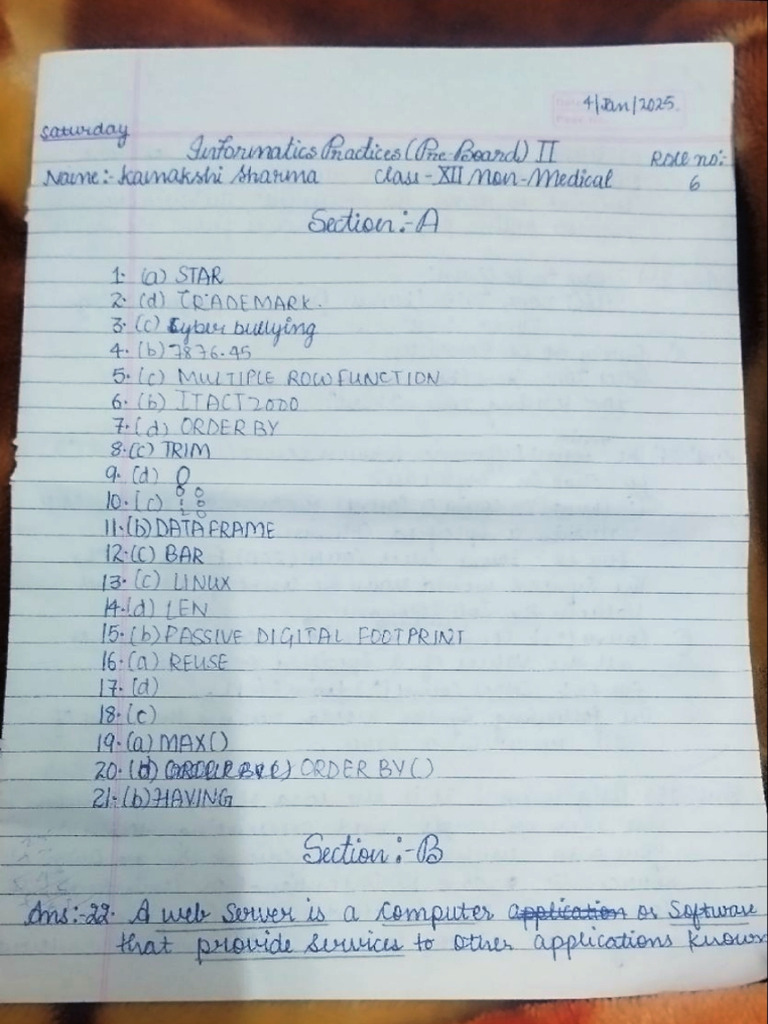 4/Jan/2025
Saturday
Informatics Practices (Pre Board) II
Roll no:-
Name:- Kamakshi Sharma Class-XII Non-Medical 6
Section:-A
1. (a) STAR
2. (d) TRADEMARK.
3. (c) Cyber bullying
4. (b) 7876.45
5. (c) MULTIPLE ROW FUNCTION
6. (b) ITACT2000
7. (d) ORDER BY
8. (c) TRIM
9. (d)
10. (c)
11. (b) DATAFRAME
12. (c) BAR
13. (c) LINUX
14. (d) LEN
15. (b) PASSIVE DIGITAL FOOTPRINT
16. (a) REUSE
17. (d)
18. (c)
19. (a) MAX()
20. (d) ORDER BY()
21. (b) HAVING
Section:-B
Ans:-22. A web server is a computer application or software
that provide services to other applications known